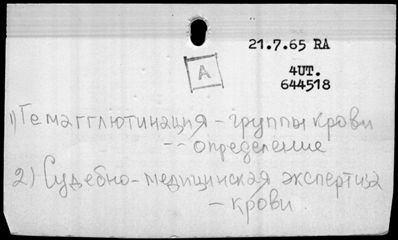 21.7.65 RA
A
4UT.
644518
1) Гемагглютинация - группы крови
-- определение
2) Судебно-медицинская экспертиза
- крови.